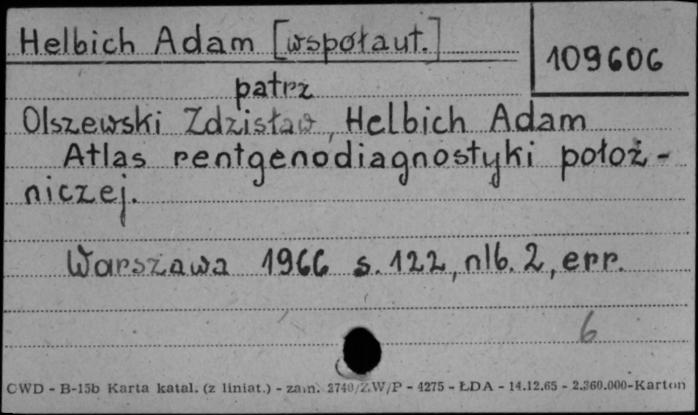 Helbich Adam [współaut.]
109606
patrz
Olszewski Zdzisław, Helbich Adam
Atlas rentgenodiagnostyki położ-
niczej.
Warszawa 1966 s. 122, nlb. 2, err.
6
CWD - B-15b Karta katal. (z liniat.) - zam. 2740/Z.W/P - 4275 - ŁDA - 14.12.65 - 2.360.000-Karton